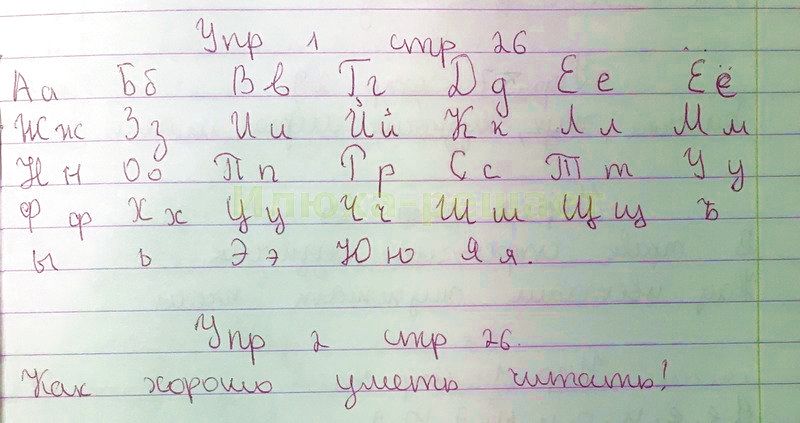 Упр 1 стр 26
Аа Бб Вв Гг Дд Ее Ёё
Жж Зз Ии Йй Кк Лл Мм
Нн Оо Пп Рр Сс Тт Уу
Фф Хх Цц Чч Шш Щщ ъ
ы ь Ээ Юю Яя.
Упр 2 стр 26.
Как хорошо уметь читать!